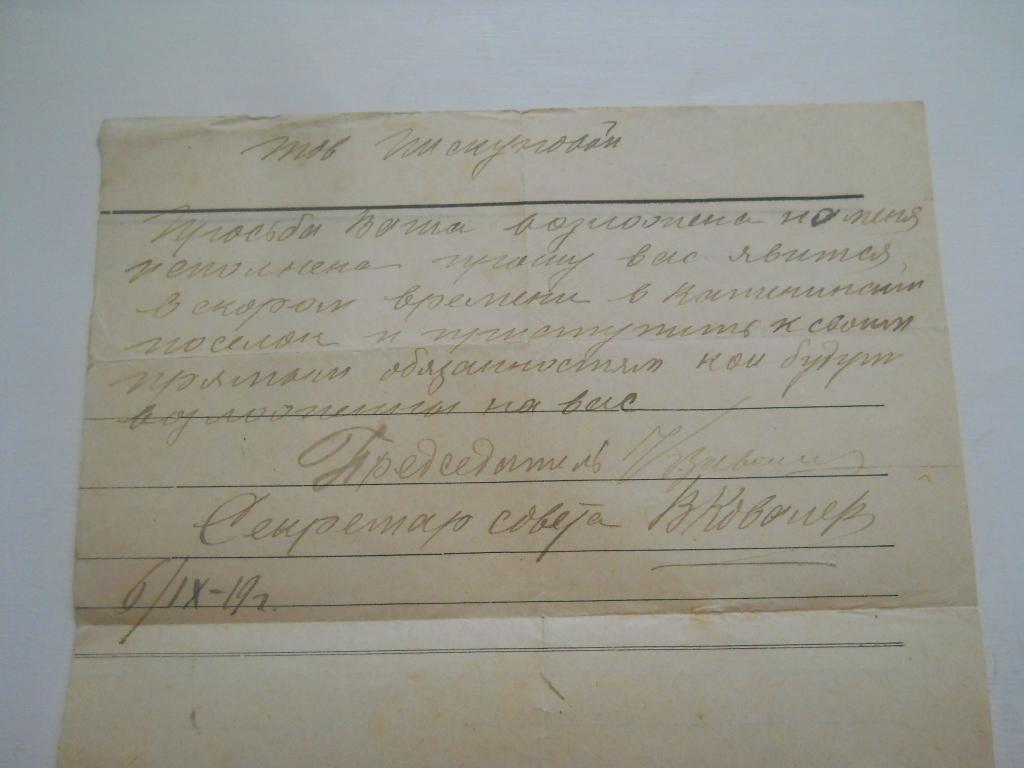 тов Пискуновой
Прозьба Ваша возложена на меня
исполнена прошу вас явится
в скором времени в Каменский
поселок и приступить к своим
прямым обязанностям кои будут
возложенны на вас
Председатель
Секретар совета В Ковалев
6/IX-19г.